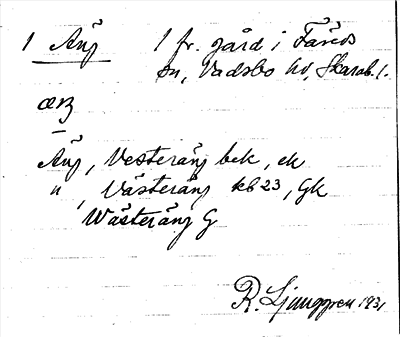 1 Äng 1 fr. gård i Färeds
sn, Vadsbo hd, Skarab. l.
æŋ
Äng, Vesteräng bek, ek
" , Västeräng kb 23, Gk
Wästeräng G
R. Ljunggren 1931